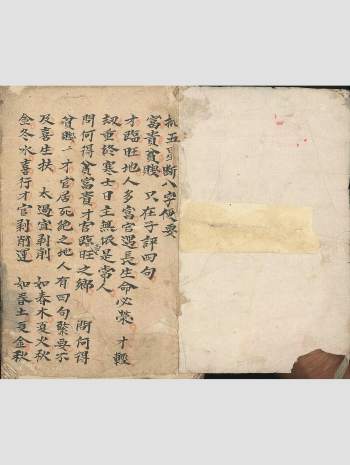 五行断八字便要
富貴貧賤 只在子評四句
才臨旺地人多富官遇長生命必榮 才輕
劫重終寒士日主無依是常人
問何得貧富貴才官臨旺之鄉 問何得
貧賤 才官居死絶之地人有四句緊要示
及喜生扶 太過宜剥削 如春木夏火秋
金冬水喜行才官剥削運 如春土夏金秋